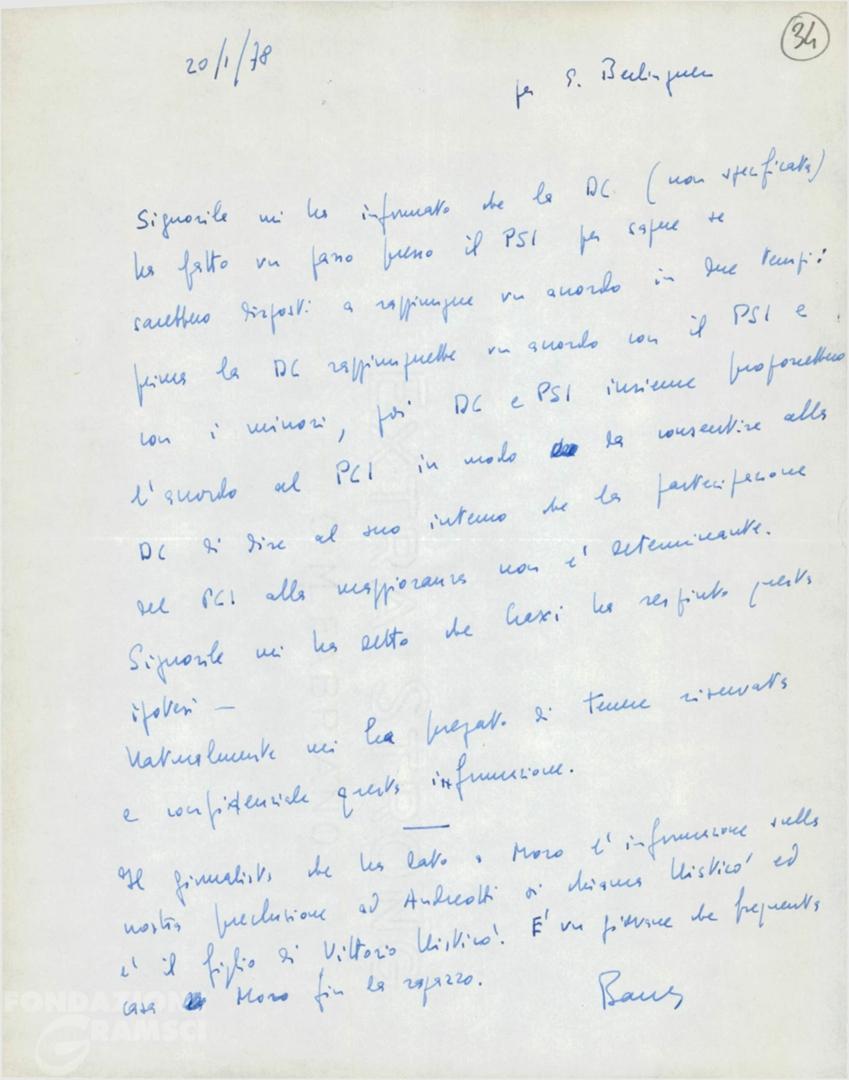 34
20/1/78
per E. Berlinguer
Signorile mi ha informato che la DC (non specificata)
ha fatto un passo presso il PSI per sapere se
sarebbero disposti a raggiungere un accordo in due tempi:
prima la DC raggiungerebbe un accordo con il PSI e
con i minori, poi DC e PSI insieme proporrebbero
l'accordo al PCI in modo da consentire alla
DC di dire al suo interno che la partecipazione
del PCI alla maggioranza non è determinante.
Signorile mi ha detto che Craxi ha respinto questa
ipotesi —
Naturalmente mi ha pregato di tenere riservata
e confidenziale questa informazione.
Il giornalista che ha dato a Moro l'informazione sulla
nostra preclusione ad Andreotti si chiama Nisticò ed
è il figlio di Vittorio Nisticò. È un giovane che frequenta
casa Moro fin da ragazzo.
Barca
FONDAZIONE
GRAMSCI
EXTRA STRONG